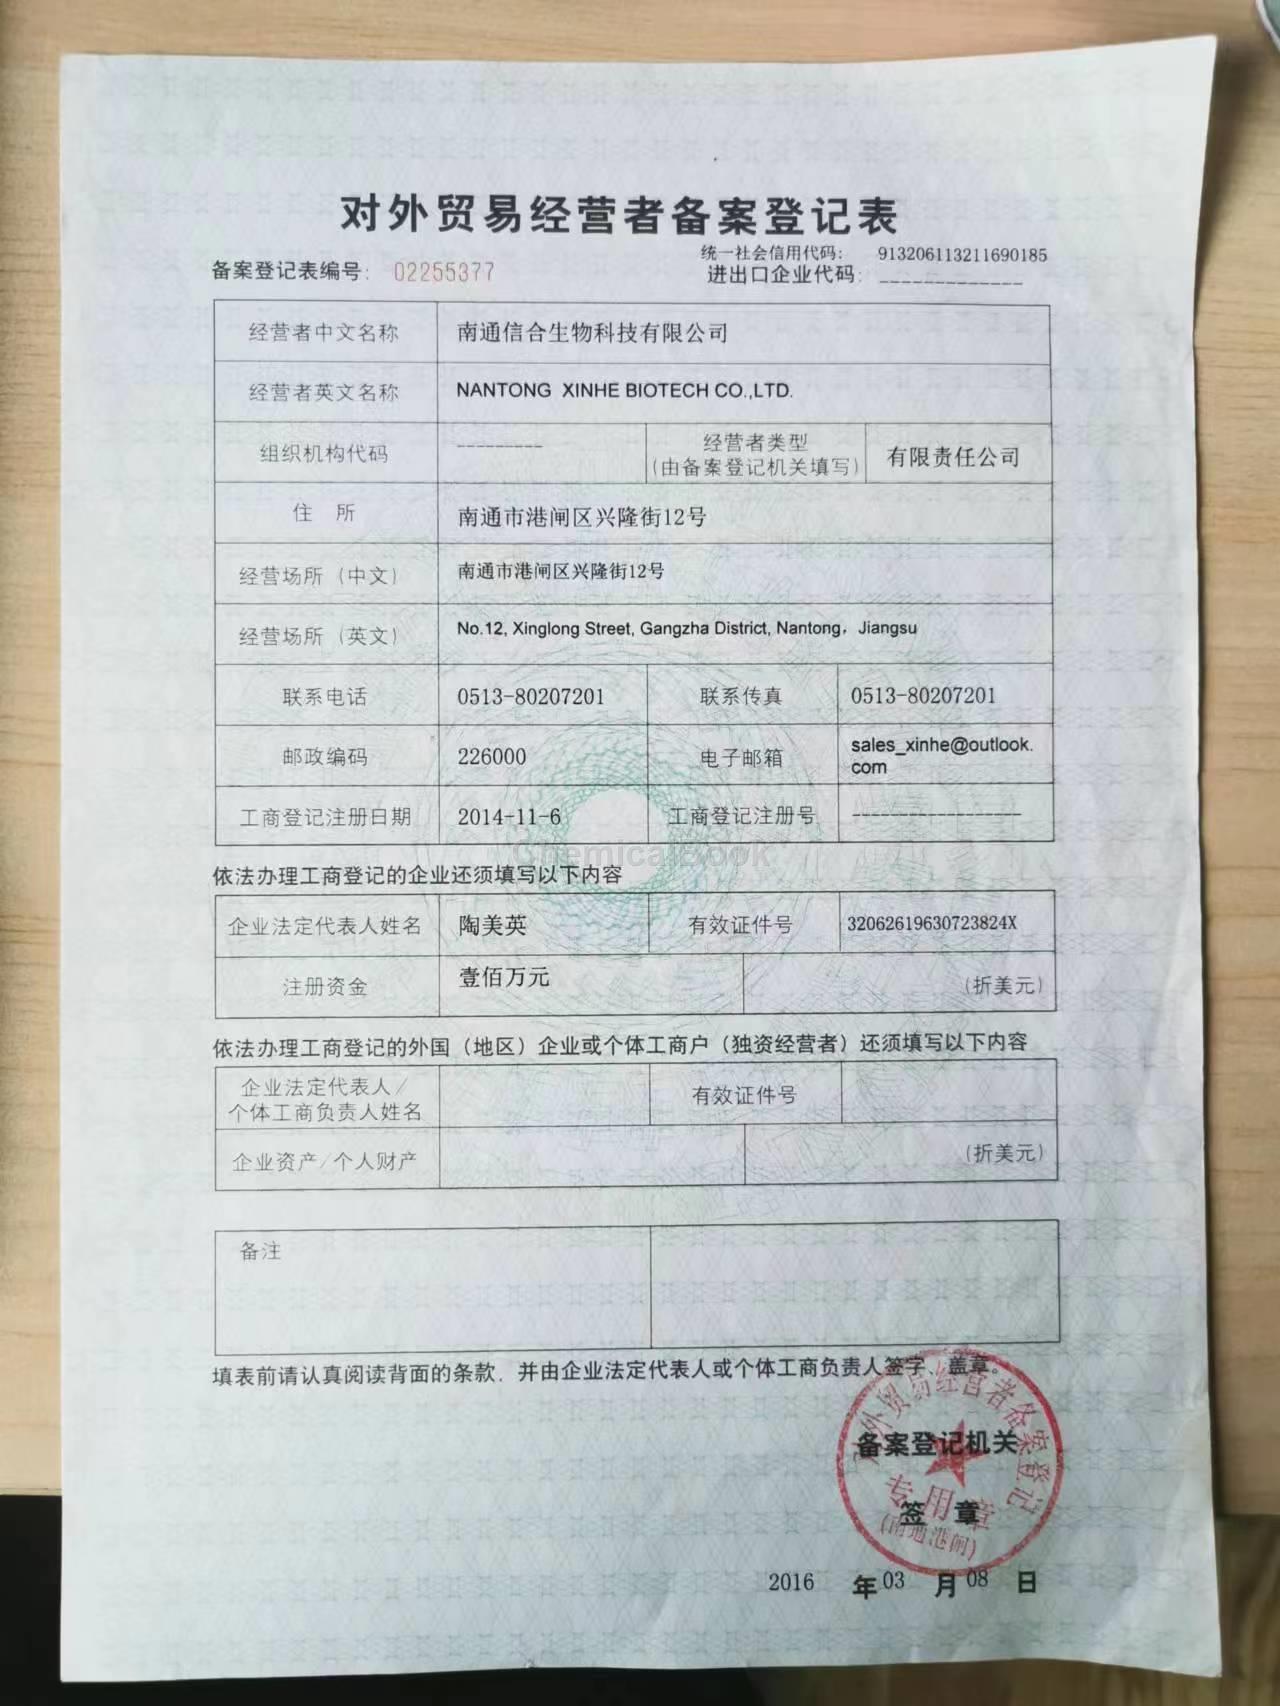 对外贸易经营者备案登记表
统一社会信用代码： 913206113211690185
备案登记表编号： 02255377
进出口企业代码： -------------
经营者中文名称 南通信合生物科技有限公司
经营者英文名称 NANTONG XINHE BIOTECH CO.,LTD.
组织机构代码 --------- 经营者类型 (由备案登记机关填写) 有限责任公司
住 所 南通市港闸区兴隆街12号
经营场所（中文） 南通市港闸区兴隆街12号
经营场所（英文） No.12, Xinglong Street, Gangzha District, Nantong，Jiangsu
联系电话 0513-80207201 联系传真 0513-80207201
邮政编码 226000 电子邮箱 sales_xinhe@outlook.
com
工商登记注册日期 2014-11-6 工商登记注册号 ------------------
ChemicalBook
依法办理工商登记的企业还须填写以下内容
企业法定代表人姓名 陶美英 有效证件号 32062619630723824X
注册资金 壹佰万元 (折美元)
依法办理工商登记的外国（地区）企业或个体工商户（独资经营者）还须填写以下内容
企业法定代表人/
个体工商负责人姓名 有效证件号
企业资产/个人财产 (折美元)
备注
填表前请认真阅读背面的条款，并由企业法定代表人或个体工商负责人签字、盖章。
对外贸易经营者备案登记
备案登记机关
专用章
签 章
(南通港闸)
2016 年 03 月 08 日